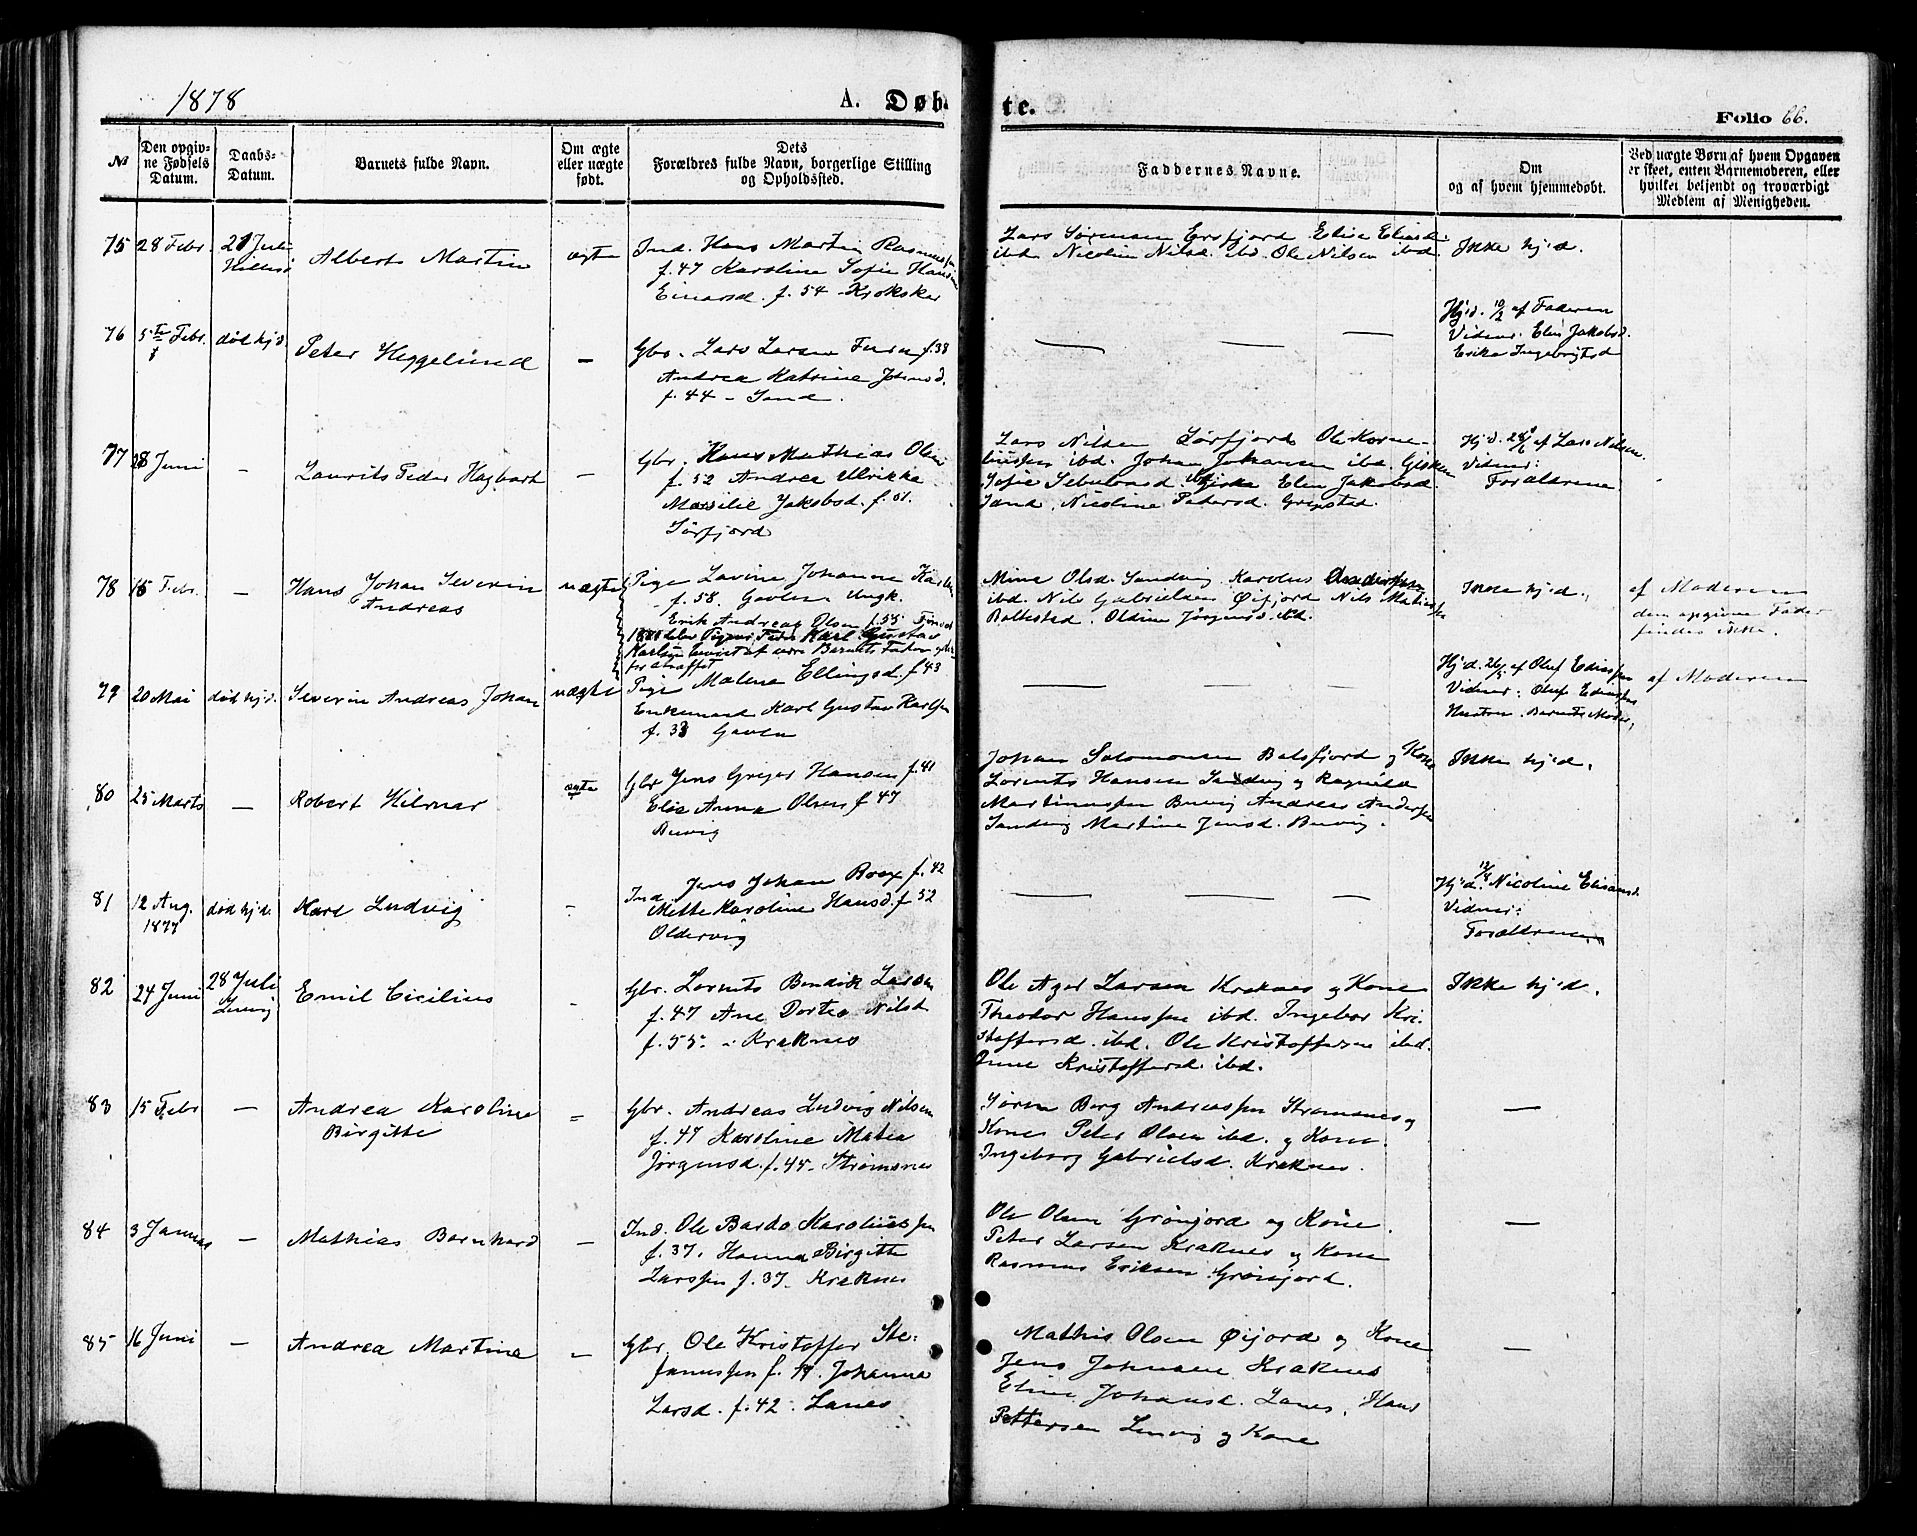 1878
A. Døb-
te.
Folio 66.
No
Den opgiv-
ne Fødsels
Datum.
Daabs-
Datum.
Barnets fulde Navn.
Om ægte
eller uægte
født.
Dets
Forældres fulde Navn, borgerlige Stilling
og Opholdssted.
Faddernes Navne.
Om
og af hvem hjemmedøbt.
Ved uægte Børn af hvem Opgaven
er skeet, enten Barnemoderen, eller
hvilket betjendt og troværdigt
Medlem af Menigheden.
75 28 Febr. 21 Juli
Hillesø
Albert Martin
ægte
Ind. Hans Martin Rasmussen
f. 47 Karoline Sofie Hansine
Einarsd. f. 54 - Krokskar
Lars Sørensen Ersfjord Elise
ibd. Nicolin Nilsd. ibd. Ole Nilsen ibd.
Ikke hj.d.
76 5te Febr. død hj.d.
Peter Heggelund
—
Gbr. Lars Larsen f. 38
Andrea Katrine Johnsd.
f. 44 - Sand.
— — —
Hj.d. 10/2 af Faderen
Vidner: Elen Jakobsd.
Erika Ingebrigtsd
77 28 Juni —
Laurits Peder Hagbart
—
Gbr. Hans Mathias Olsen
f. 52 Andrea Ulrikke
Marselie Jakobsd. f. 51.
Sørfjord
Lars Nilsen Sørfjord Ole Korne-
liussen ibd. Johan Johansen ibd.
Sofie Elen Jakobsd.
Sand, Nicoline Pedersd. Grepstad.
Hj.d. 28/6 af Lars Nilsen.
Vidner:
Forældrene
78 15 Febr. —
Hans Johan Severin
Andreas
uægte
Pige Lavine Johanne
f. 58. Gavlen Ungk.
Erik Andreas Olsen f. 55
Karl Gustav
Karlsen bevist at være Barnets Fader
straffet
Mina Olsd. Sandvig Karolus Andersen
ibd. Nils Gabrielsen Øifjord Nils
Balsstad. Oldine Jørgensd. ibd.
Ikke hj.d.
af Moderen
den opgivne Fader
findes ikke.
79 20 Mai død hj.d.
Severin Andreas Johan
uægte
Pige Malena Ellingsd. f. 43
Enkemand Karl Gustav Karlsen
f. 33 Gavlen
— — —
Hj.d. 26/5 af Oluf Edissen
Vidner: Oluf Edissens
Hustru. Barnets Moder,
af Moderen
80 25 Marts —
Robert Hilmar
ægte
Gbr Jens Greger Hansen f. 41
Elis Anna Olsen f 47
Buvig
Johan Salomonsen Balsfjord og Kone
Lorents Hansen Sandvig og Ragnild
Martinussen Buvig Andreas Andersen
Sandvig Martine Jensd. Buvig.
Ikke hj.d.
81 12 Aug.
1877
død hj.d.
Karl Ludvig
-
Ind. Jens Johan f. 42
Mette Karoline Hansd. f 52
Oldervig
— — —
Hj.d. 12/8 Nicoline
Vidner:
Forældrene
82 24 Juni 28 Juli
Lenvig
Emil Cicilius
-
Gbr. Lorents Bendik Larsen
f. 47 Ane Dortea Nilsd
f. 55. - Kraknes
Ole Ager Larsen Kraknes og Kone
Theodor Hanssen ibd. Ingebor Kri-
stoffersd. ibd. Ole Kristoffersen ibd.
Anne Kristoffersd. ibd.
Ikke hj.d.
83 15 Febr —
Andrea Karoline
Birgitte
-
Gbr. Andreas Ludvig Nilsen
f. 47 Karoline Matea
Jørgensd. f. 45 - Strømsnes
Søren Berg Andreassen Strømsnes og
Kone Peter Olsen ibd. og Kone.
Ingeborg Gabrielsd. Kraknes.
—
84 3 Januar —
Mathias Bernhard
—
Ind. Ole Bardo Karoliussen
f. 37. Hanna Birgitte
Larssen f. 37. Kraknes
Ole Olsen Grønjord og Kone.
Peter Larsen Kraknes og Kone
Rasmus Eriksen Grønjord.
—
85 16 Juni —
Andrea Martine
-
Gbr. Ole Kristoffer Ste-
fanussen f. Johanna
Larsd. f. 42. Lanes
Mathis Olsen Øijord og Kone
Jens Johnsen Kraknes
Eline Johansd. Lanes. Hans
Pettersen Lenvig og Kone
—